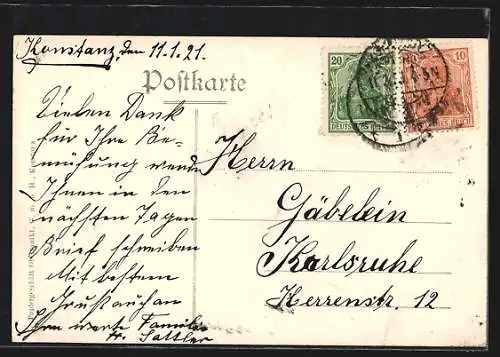 Konstanz, den 11.1.21.
Postkarte
Vielen Dank
für Ihre Be-
mühung werde
Ihnen in den
nächsten Tagen
Brief schreiben
Mit bestem
Gruß auch an
Ihre werte Familie
Fr. Sattler
20
10
DEUTSCHES REICH
Herrn
Gäbelein
Karlsruhe
Herrenstr. 12